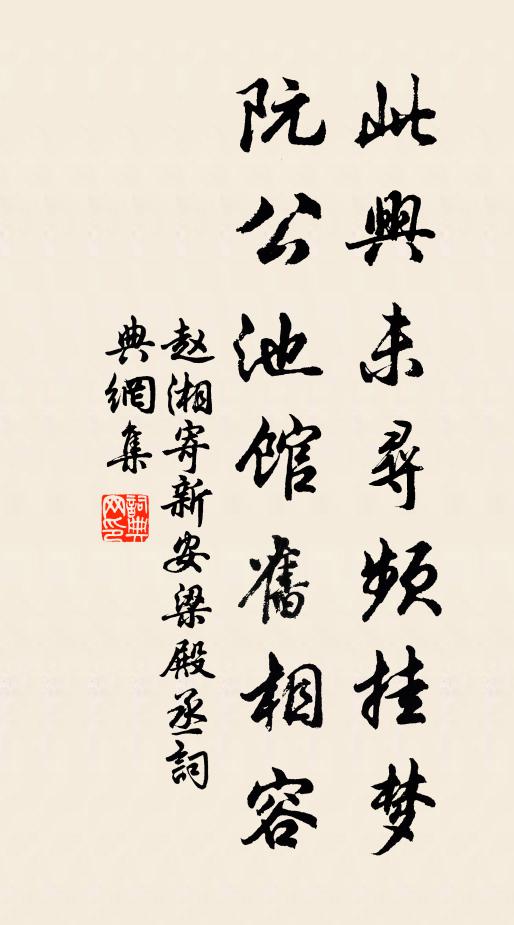 此興未尋頻挂梦
阮公池馆舊相容
赵湘寄新安梁殿丞詞
典網集
詞典網印